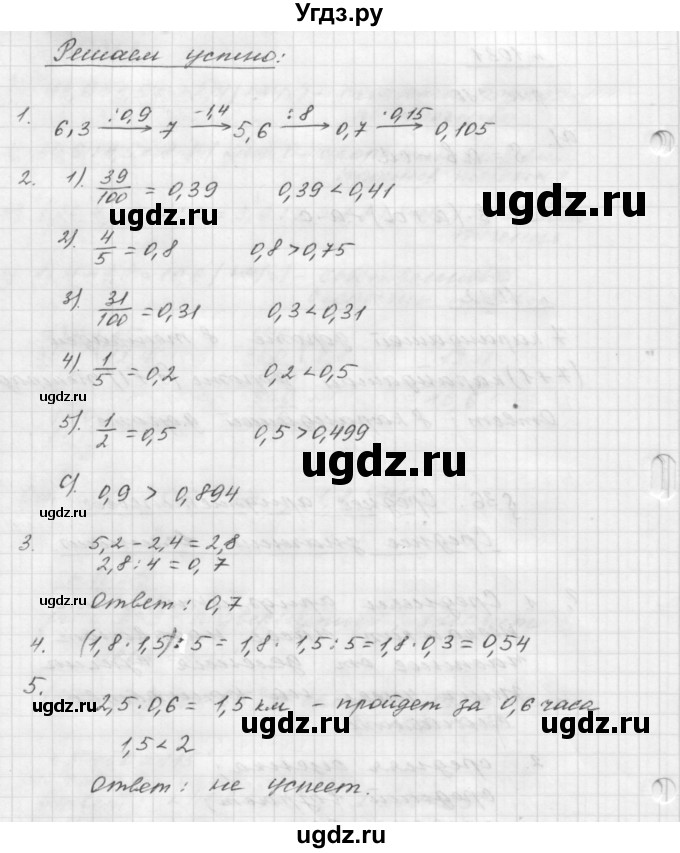 Угдз.ру
Решаем устно:
1. 6,3 —:0,9→ 7 —-1,4→ 5,6 —:8→ 0,7 —·0,15→ 0,105
2. 1). 39/100 = 0,39   0,39 < 0,41
ugdz.ru
2). 4/5 = 0,8   0,8 > 0,75
ugdz.ru
3). 31/100 = 0,31   0,3 < 0,31
4). 1/5 = 0,2   0,2 < 0,5
ugdz.ru
5). 1/2 = 0,5   0,5 > 0,499
ugdz.ru
с). 0,9 > 0,894
ugdz.ru
3. 5,2 - 2,4 = 2,8
2,8 : 4 = 0,7
ugdz.ru
Ответ: 0,7
ugdz.ru
4. (1,8 · 1,5) : 5 = 1,8 · 1,5 : 5 = 1,8 · 0,3 = 0,54
5.
2,5 · 0,6 = 1,5 км - пройдет за 0,6 часа
ugdz.ru
ugdz.ru
1,5 < 2
Ответ: не успеет.
ugdz.ru
ugdz.ru